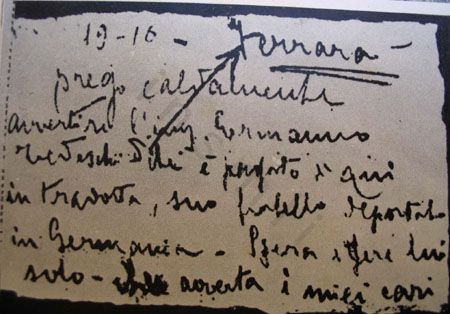 19-10 - Ferrara -
prego caldamente
avvertire l'ing. Germanno
Tedeschi che è passato di qui
in tradotta, suo fratello deportato
in Germania - Spera essere lui
solo - avverta i miei cari